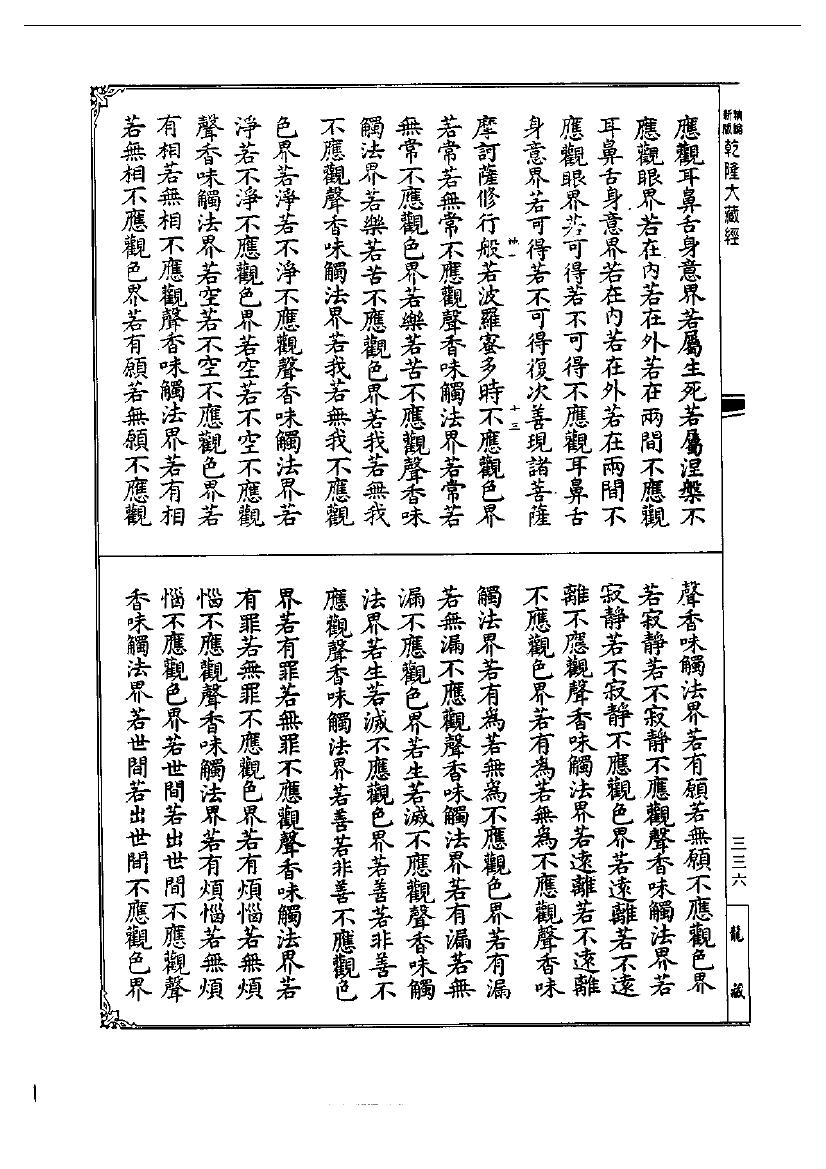 精縮
新版
乾隆大藏經
應觀耳鼻舌身意界若屬生死若屬涅槃不
應觀眼界若在內若在外若在兩間不應觀
耳鼻舌身意界若在內若在外若在兩間不
應觀眼界若可得若不可得不應觀耳鼻舌
身意界若可得若不可得復次善現諸菩薩
十三
摩訶薩修行般若波羅蜜多時不應觀色界
若常若無常不應觀聲香味觸法界若常若
無常不應觀色界若樂若苦不應觀聲香味
觸法界若樂若苦不應觀色界若我若無我
不應觀聲香味觸法界若我若無我不應觀
色界若淨若不淨不應觀聲香味觸法界若
淨若不淨不應觀色界若空若不空不應觀
聲香味觸法界若空若不空不應觀色界若
有相若無相不應觀聲香味觸法界若有相
若無相不應觀色界若有願若無願不應觀
聲香味觸法界若有願若無願不應觀色界
若寂靜若不寂靜不應觀聲香味觸法界若
寂靜若不寂靜不應觀色界若遠離若不遠
離不應觀聲香味觸法界若遠離若不遠離
不應觀色界若有為若無為不應觀聲香味
觸法界若有為若無為不應觀色界若有漏
若無漏不應觀聲香味觸法界若有漏若無
漏不應觀色界若生若滅不應觀聲香味觸
法界若生若滅不應觀色界若善若非善不
應觀聲香味觸法界若善若非善不應觀色
界若有罪若無罪不應觀聲香味觸法界若
有罪若無罪不應觀色界若有煩惱若無煩
惱不應觀聲香味觸法界若有煩惱若無煩
惱不應觀色界若世間若出世間不應觀聲
香味觸法界若世間若出世間不應觀色界
三三六
龍藏